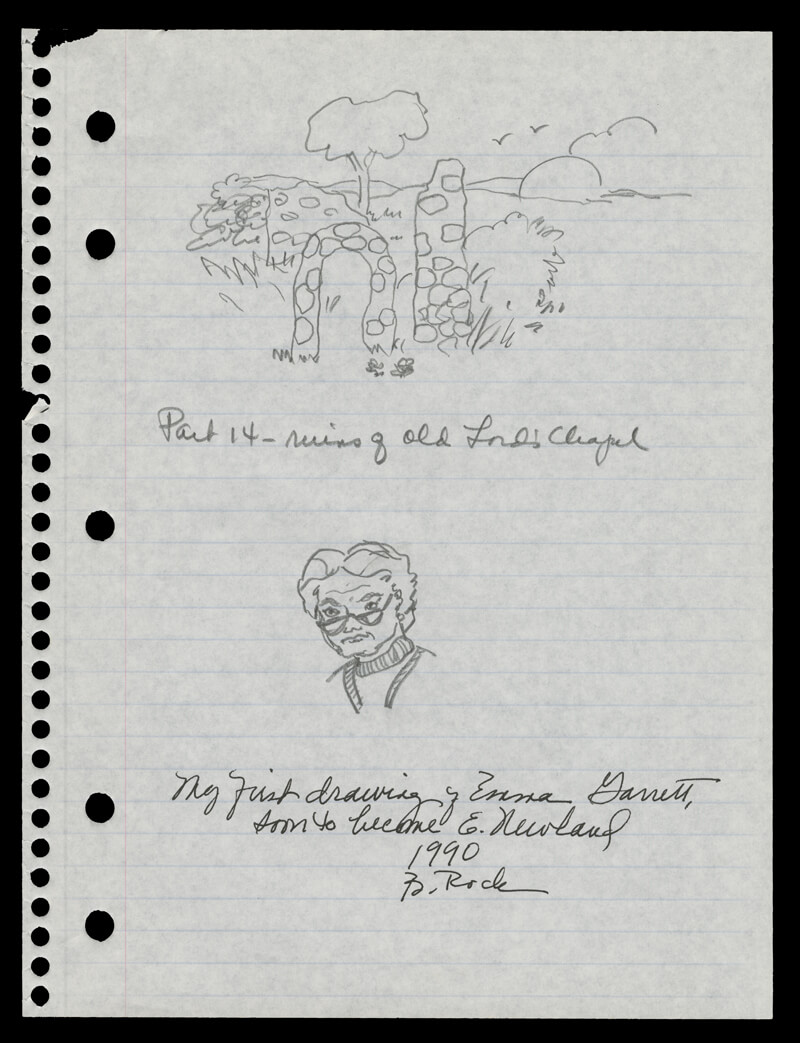 Part 14 - ruins of old Lord's Chapel
My first drawing of Emma Garrett,
soon to become E. Newland
1990
B. Rock